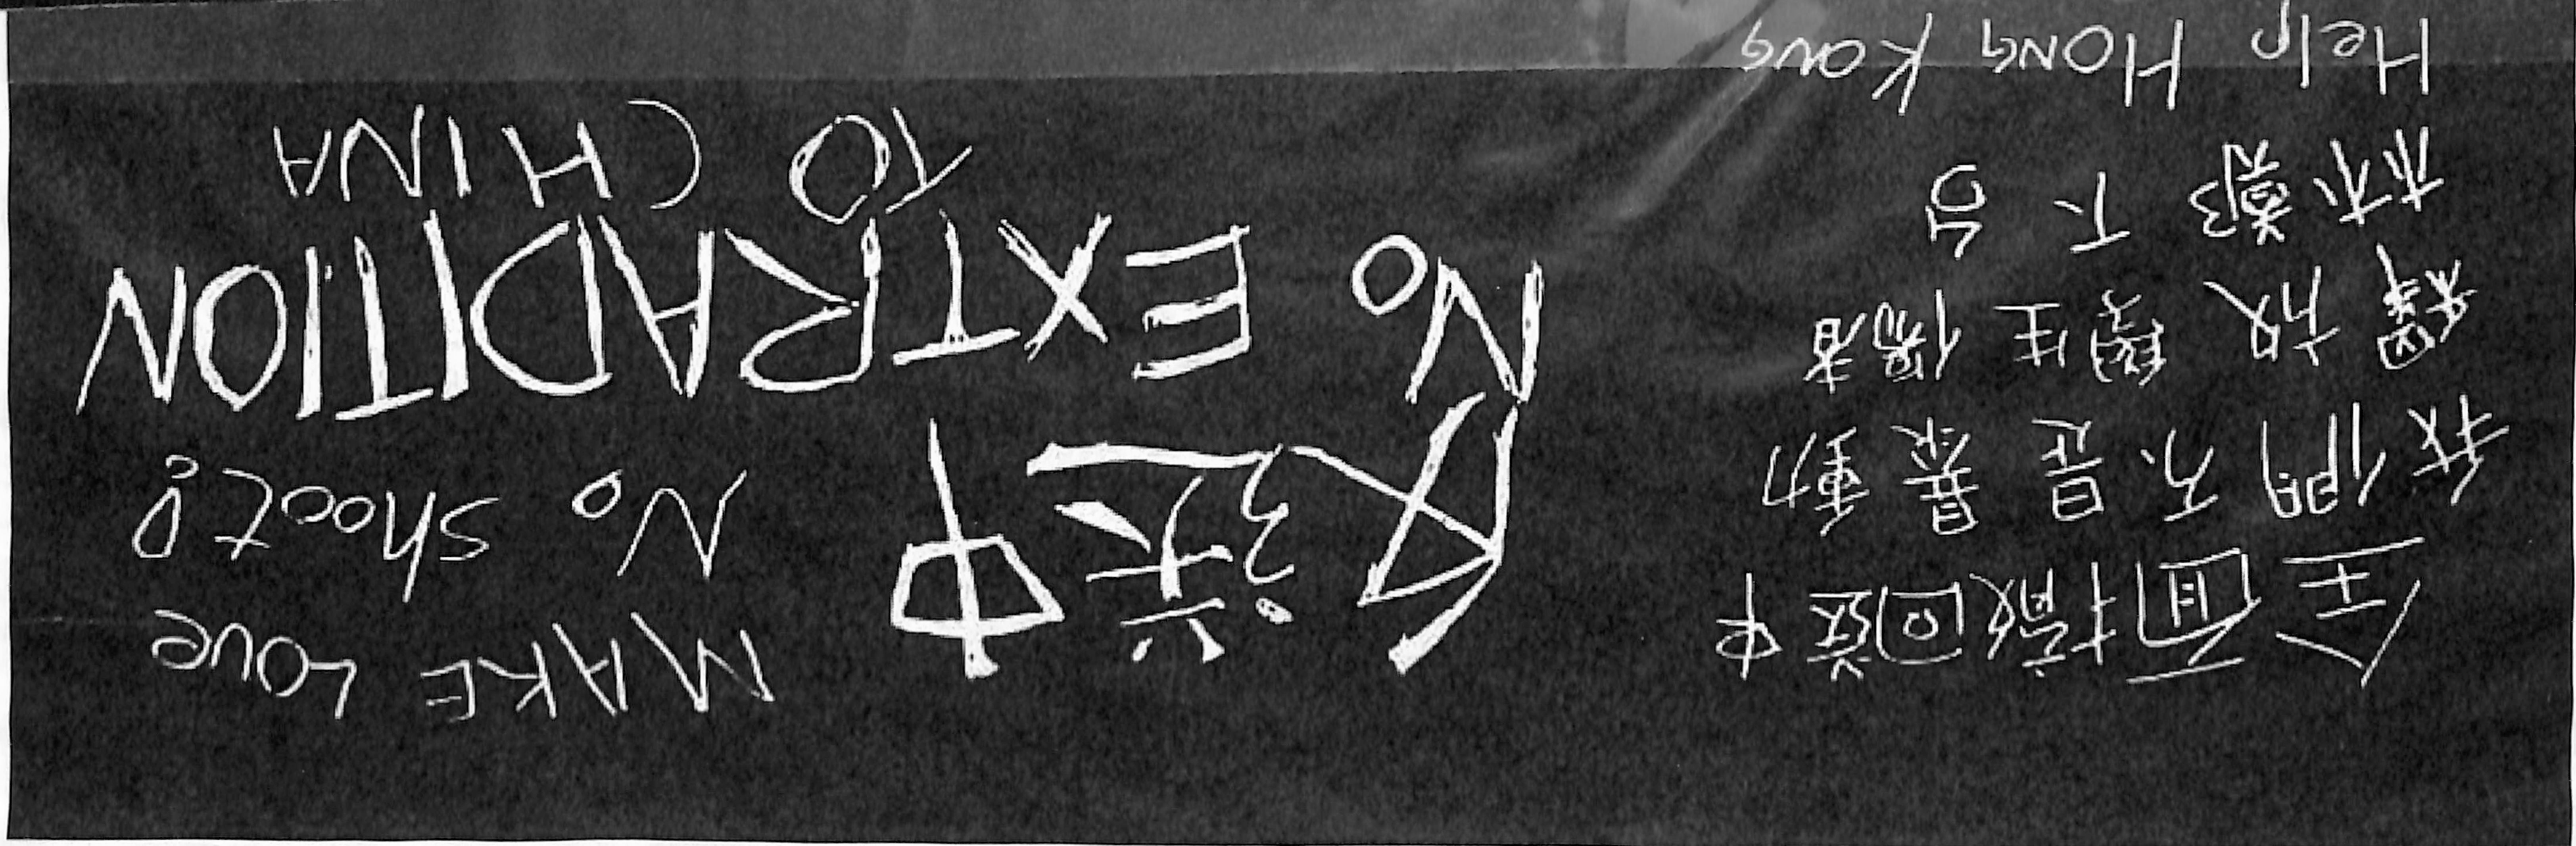 全面撤回送中
我們不是暴動
釋放學生傷者
林鄭下台
Help HONG KONG
反送中
No EXTRADITION
TO CHINA
MAKE LOve
No shoot!